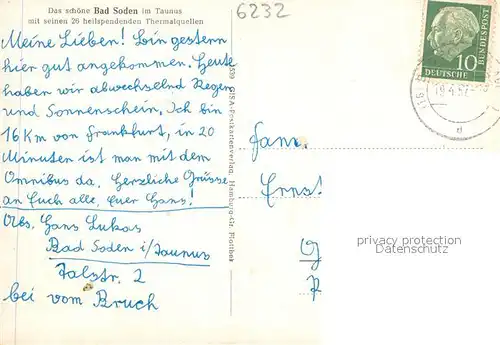 Das schöne Bad Soden im Taunus
mit seinen 26 heilspendenden Thermalquellen
6232
Meine Lieben! bin gestern
hier gut angekommen. Heute
haben wir abwechselnd Regen
und Sonnenschein. Ich bin
16 Km von Frankfurt, in 20
Minuten ist man mit dem
Omnibus da. Herzliche Grüsse
an Euch alle, Euer Hans!
Abs. Hans Lukas
Bad Soden i/Taunus
Talstr. 2
bei vom Bruch
GISA-Postkartenverlag, Hamburg-Gr. Flottbek
10
DEUTSCHE
BUNDESPOST
19.4.57
d
Fam.
Erns!
privacy protection
Datenschutz